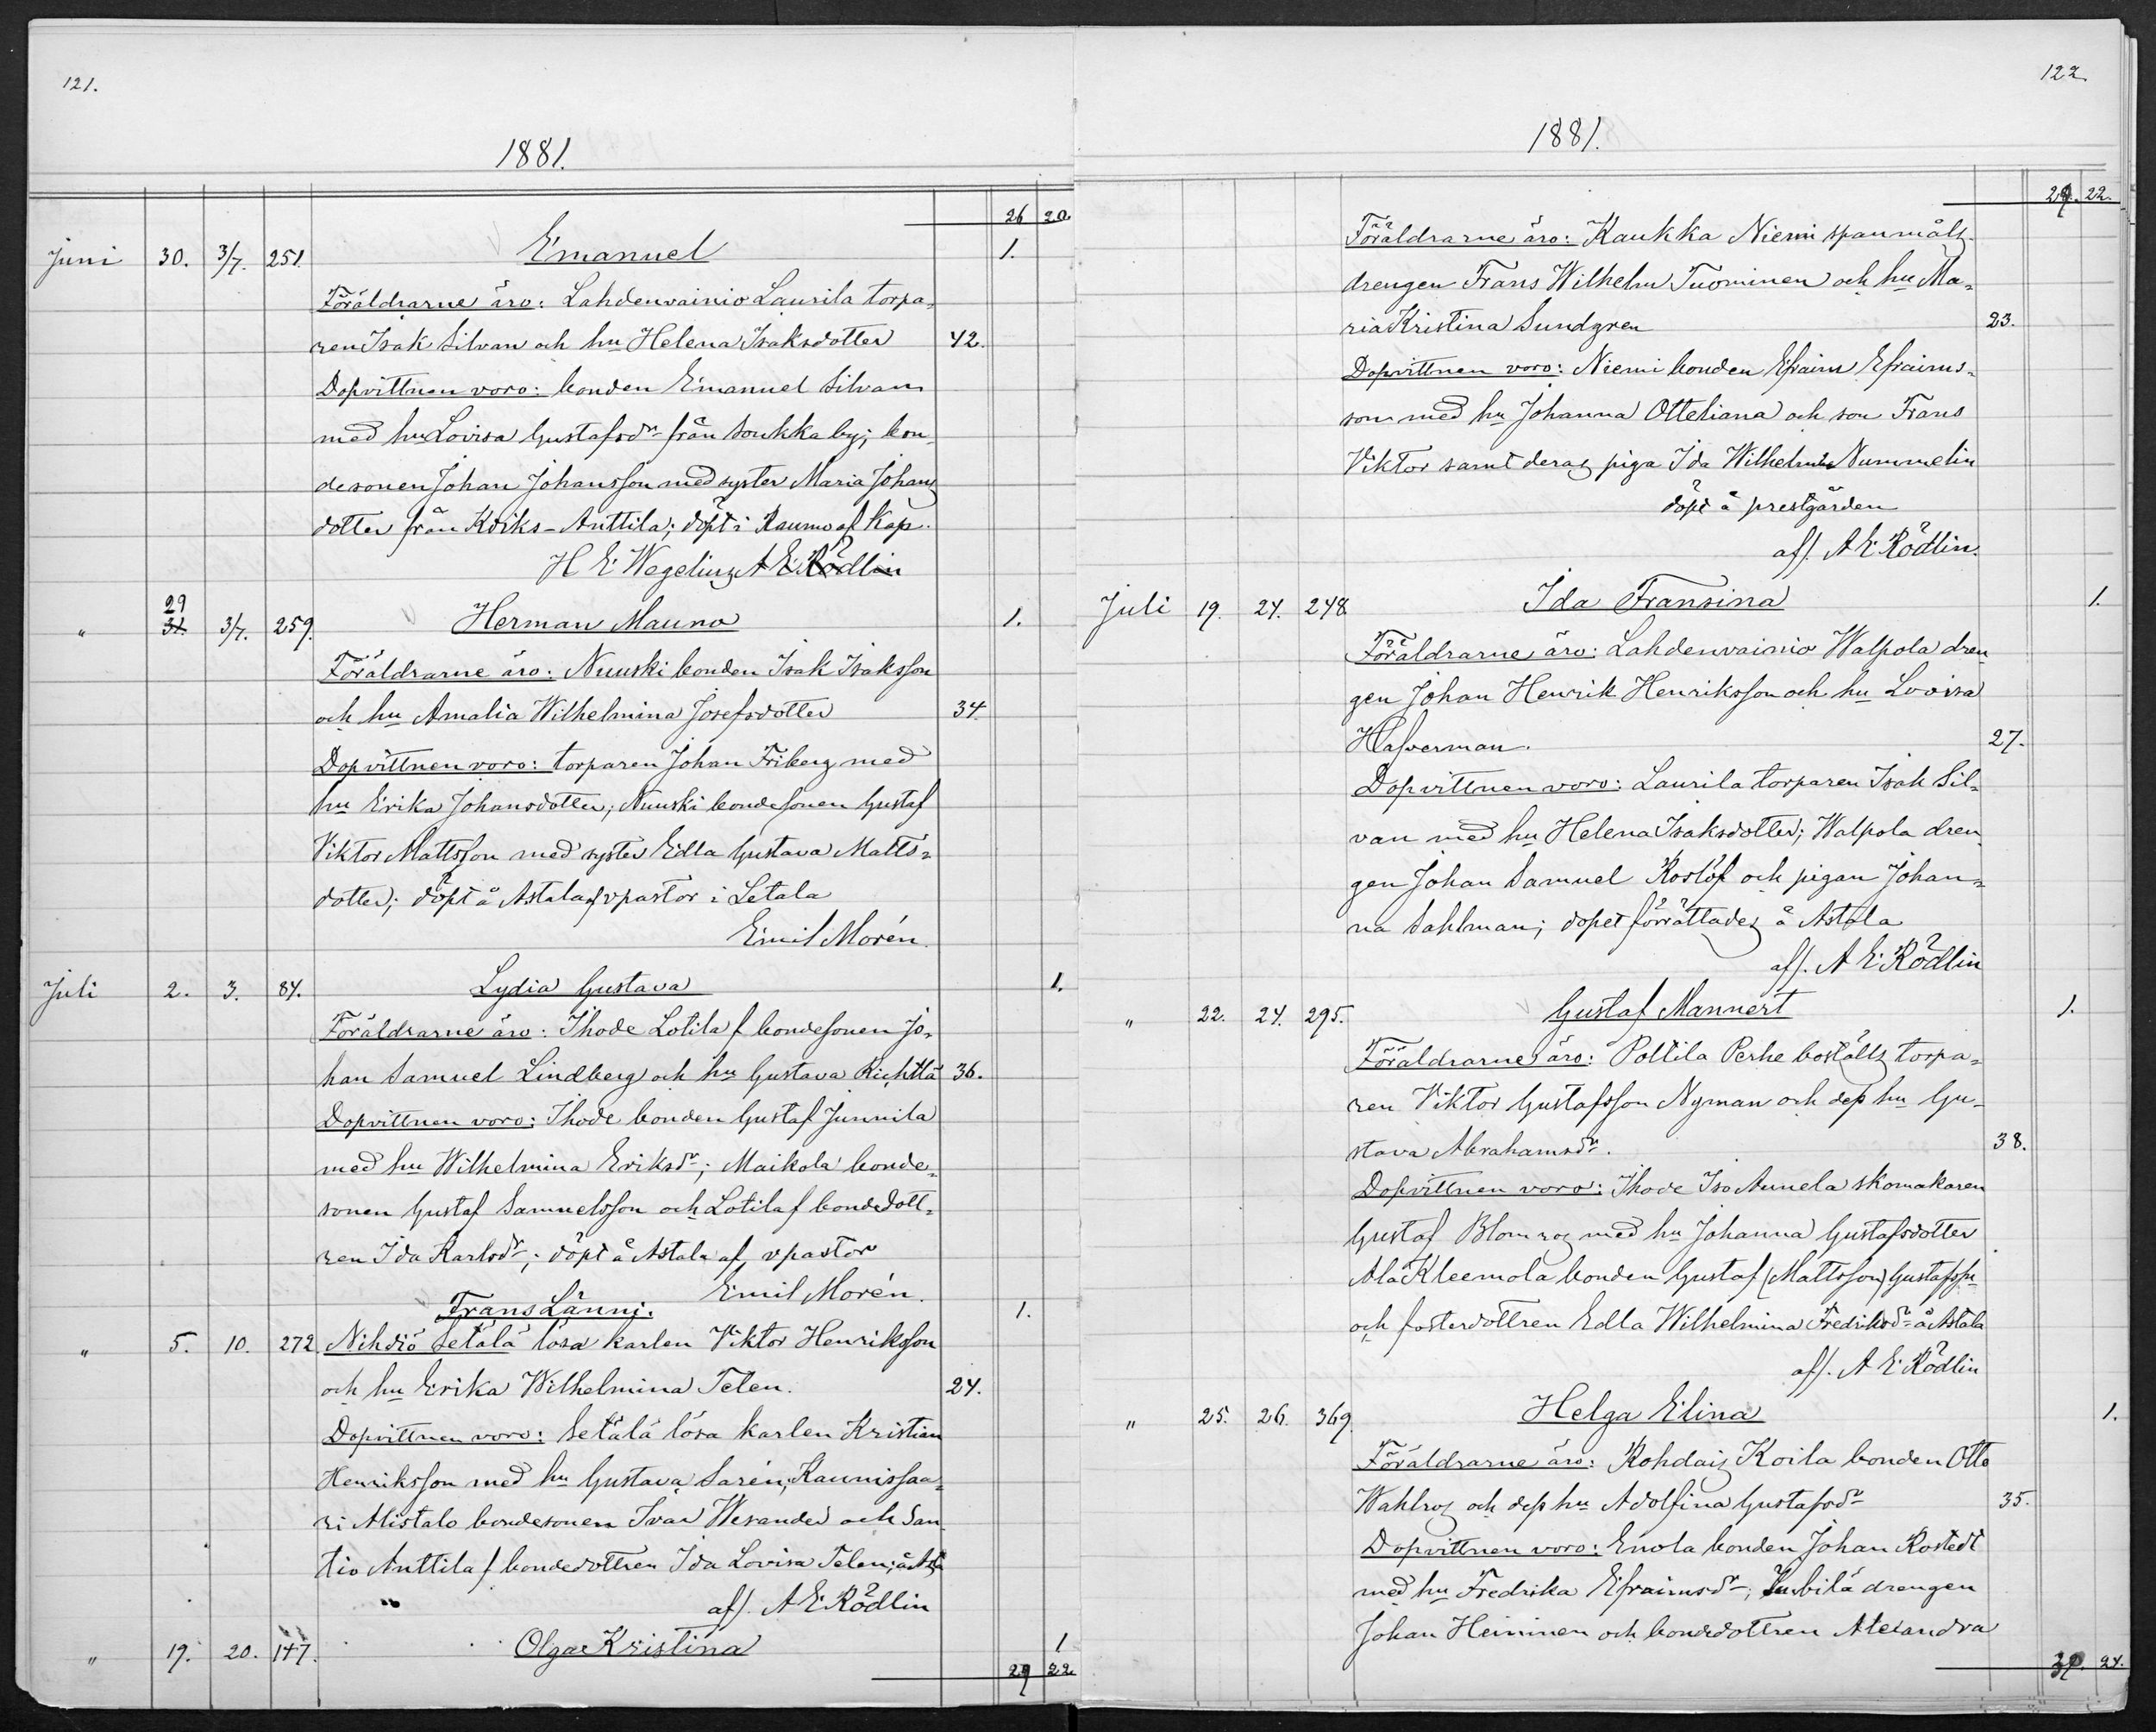 121.
1881.
26 20.
Juni 30. 3/7. 251. Emanuel 1.
Föräldrarne äro: Lahdenvainio Laurila torpa-
ren Isak Silvan och hu Helena Isaksdotter 42.
Dopvittnen voro: bonden Emanuel Silvan
med hu Lovisa Gustafsdr från Soukka by; bon-
desonen Johan Johansson med syster Maria Johans
dotter från Koiks-Anttila; döpt i Raumo af Kap.
H E Wegelius A E Rödlin
29
" 31. 3/7. 259. Herman Mauno 1.
Föräldrarne äro: Nuuski bonden Isak Isaksson
och hu Amalia Wilhelmina Josefsdotter 34.
Dopvittnen voro: torparen Johan Friberg med
hu Erika Johansdotter; Nuuski bondesonen Gustaf
Viktor Mattsson med syster Edla Gustava Matts-
dotter; döpt å Astala af vpastor i Letala
Emil Morén.
Juli 2. 3. 84. Lydia Gustava 1.
Föräldrarne äro: Ihode Lotila f bondesonen Jo-
han Samuel Lindberg och hu Gustava Richttä 36.
Dopvittnen voro: Ihode bonden Gustaf Junnila
med hu Wilhelmina Eriksdr; Maikola bonde-
sonen Gustaf Samuelsson och Lotila f bondedott-
ren Ida Karlsdr; döpt å Astala af vpastor
Emil Morén.
Frans Länni. 1.
" 5. 10. 272. Nihdiö Setälä lösa karlen Viktor Henriksson
och hu Erika Wilhelmina Telen. 24.
Dopvittnen voro: Setälä lösa karlen Kristian
Henriksson med hu Gustava Sarén; Kaunissaa-
ri Alistalo bondesonen Ivar Wesander och San-
tio Anttila f bondedottren Ida Lovisa Telen; å Ast.
aff. A E Rödlin
" 19. 20. 147. Olga Kristina 1
29 22.
122.
1881.
29. 22.
Föräldrarne äro: Kaukka Niemi spanmåls-
drengen Frans Wilhelm Tuominen och hu Ma-
ria Kristina Sundgren 23.
Dopvittnen voro: Niemi bonden Efraim Efraims-
son med hu Johanna Otteliana och son Frans
Viktor samt deras piga Ida Wilhelmina Nummelin
döpt å prestgården
aff. A E Rödlin.
Juli 19. 24. 248. Ida Fransina 1.
Föräldrarne äro: Lahdenvainio Walpola dren
gen Johan Henrik Henriksson och hu Lovisa
Hafverman. 27.
Dopvittnen voro: Laurila torparen Isak Sil-
van med hu Helena Isaksdotter; Walpola dren
gen Johan Samuel Roslöf och pigan Johan-
na Sahlman; dopet förrättades å Astala
aff. A E Rödlin
" 22. 24. 295. Gustaf Mannert 1.
Föräldrarne äro: Polttila Perhe boställs torpa-
ren Viktor Gustafsson Nyman och dess hu Gu-
stava Abrahamsdr. 38.
Dopvittnen voro: Ihode Iso Aunela skomakaren
Gustaf Blomroz med hu Johanna Gustafsdotter
Ala Kleemola bonden Gustaf (Mattsson) Gustafsson
och fosterdottren Edla Wilhelmina Fredriksdr å Astala
aff. A E Rödlin
" 25. 26. 369. Helga Elina 1.
Föräldrarne äro: Rohdais Koila bonden Otto
Wahlroz och dess hu Adolfina Gustafsdr 35.
Dopvittnen voro: Enola bonden Johan Rostedt
med hu Fredrika Efraimsdr; drengen
Johan Heininen och bondedottren Alexandra
30. 24.